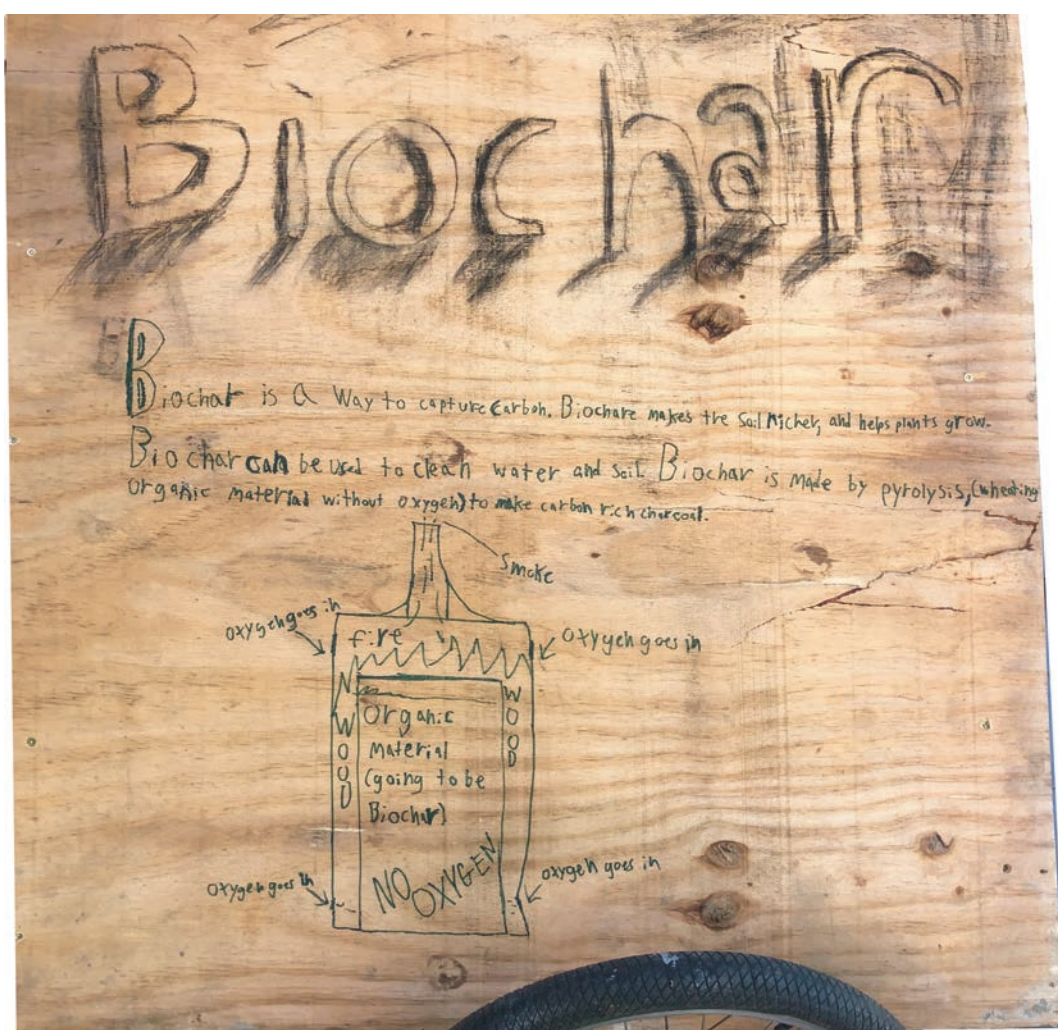 Biochar
Biochar is a Way to capture carbon. Biochare makes the soil richer, and helps plants grow.
Biochar can be used to clean water and soil. Biochar is made by pyrolysis, (heating
organic material without oxygen) to make carbon rich charcoal.
Smoke
oxygen goes in
fire
oxygen goes in
WOOD
WOOD
Organic
Material
(going to be
Biochar)
NO OXYGEN
oxygen goes in
oxygen goes in